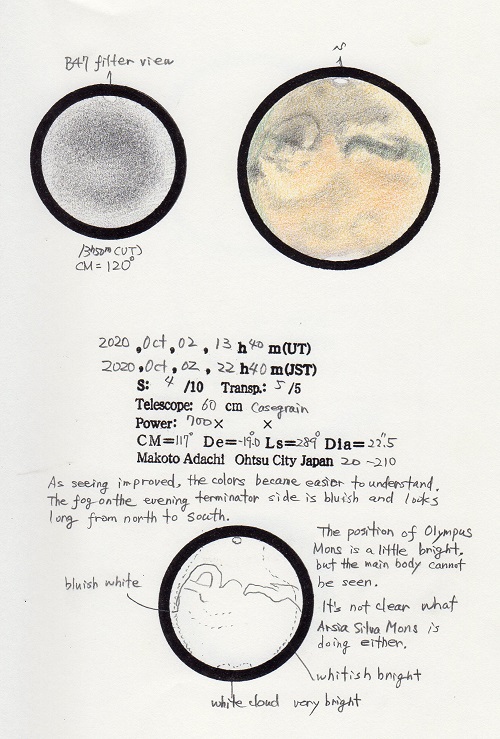 B47 filter view
N
13h50m(UT)
CM=120°
2020, Oct, 02, 13 h 40 m(UT)
2020, Oct, 02, 22 h 40 m(JST)
S: 4 /10 Transp.: 5 /5
Telescope: 60 cm Casegrain
Power: 700× ×
CM=117° De=-19.0° Ls=289° Dia=22".5
Makoto Adachi Ohtsu City Japan 20-210
As seeing improved, the colors became easier to understand.
The fog on the evening terminator side is bluish and looks
long from north to south.
The position of Olympus
Mons is a little bright,
but the main body cannot
be seen.
bluish white
It's not clear what
Arsia Silva Mons is
doing either.
whitish bright
white cloud very bright